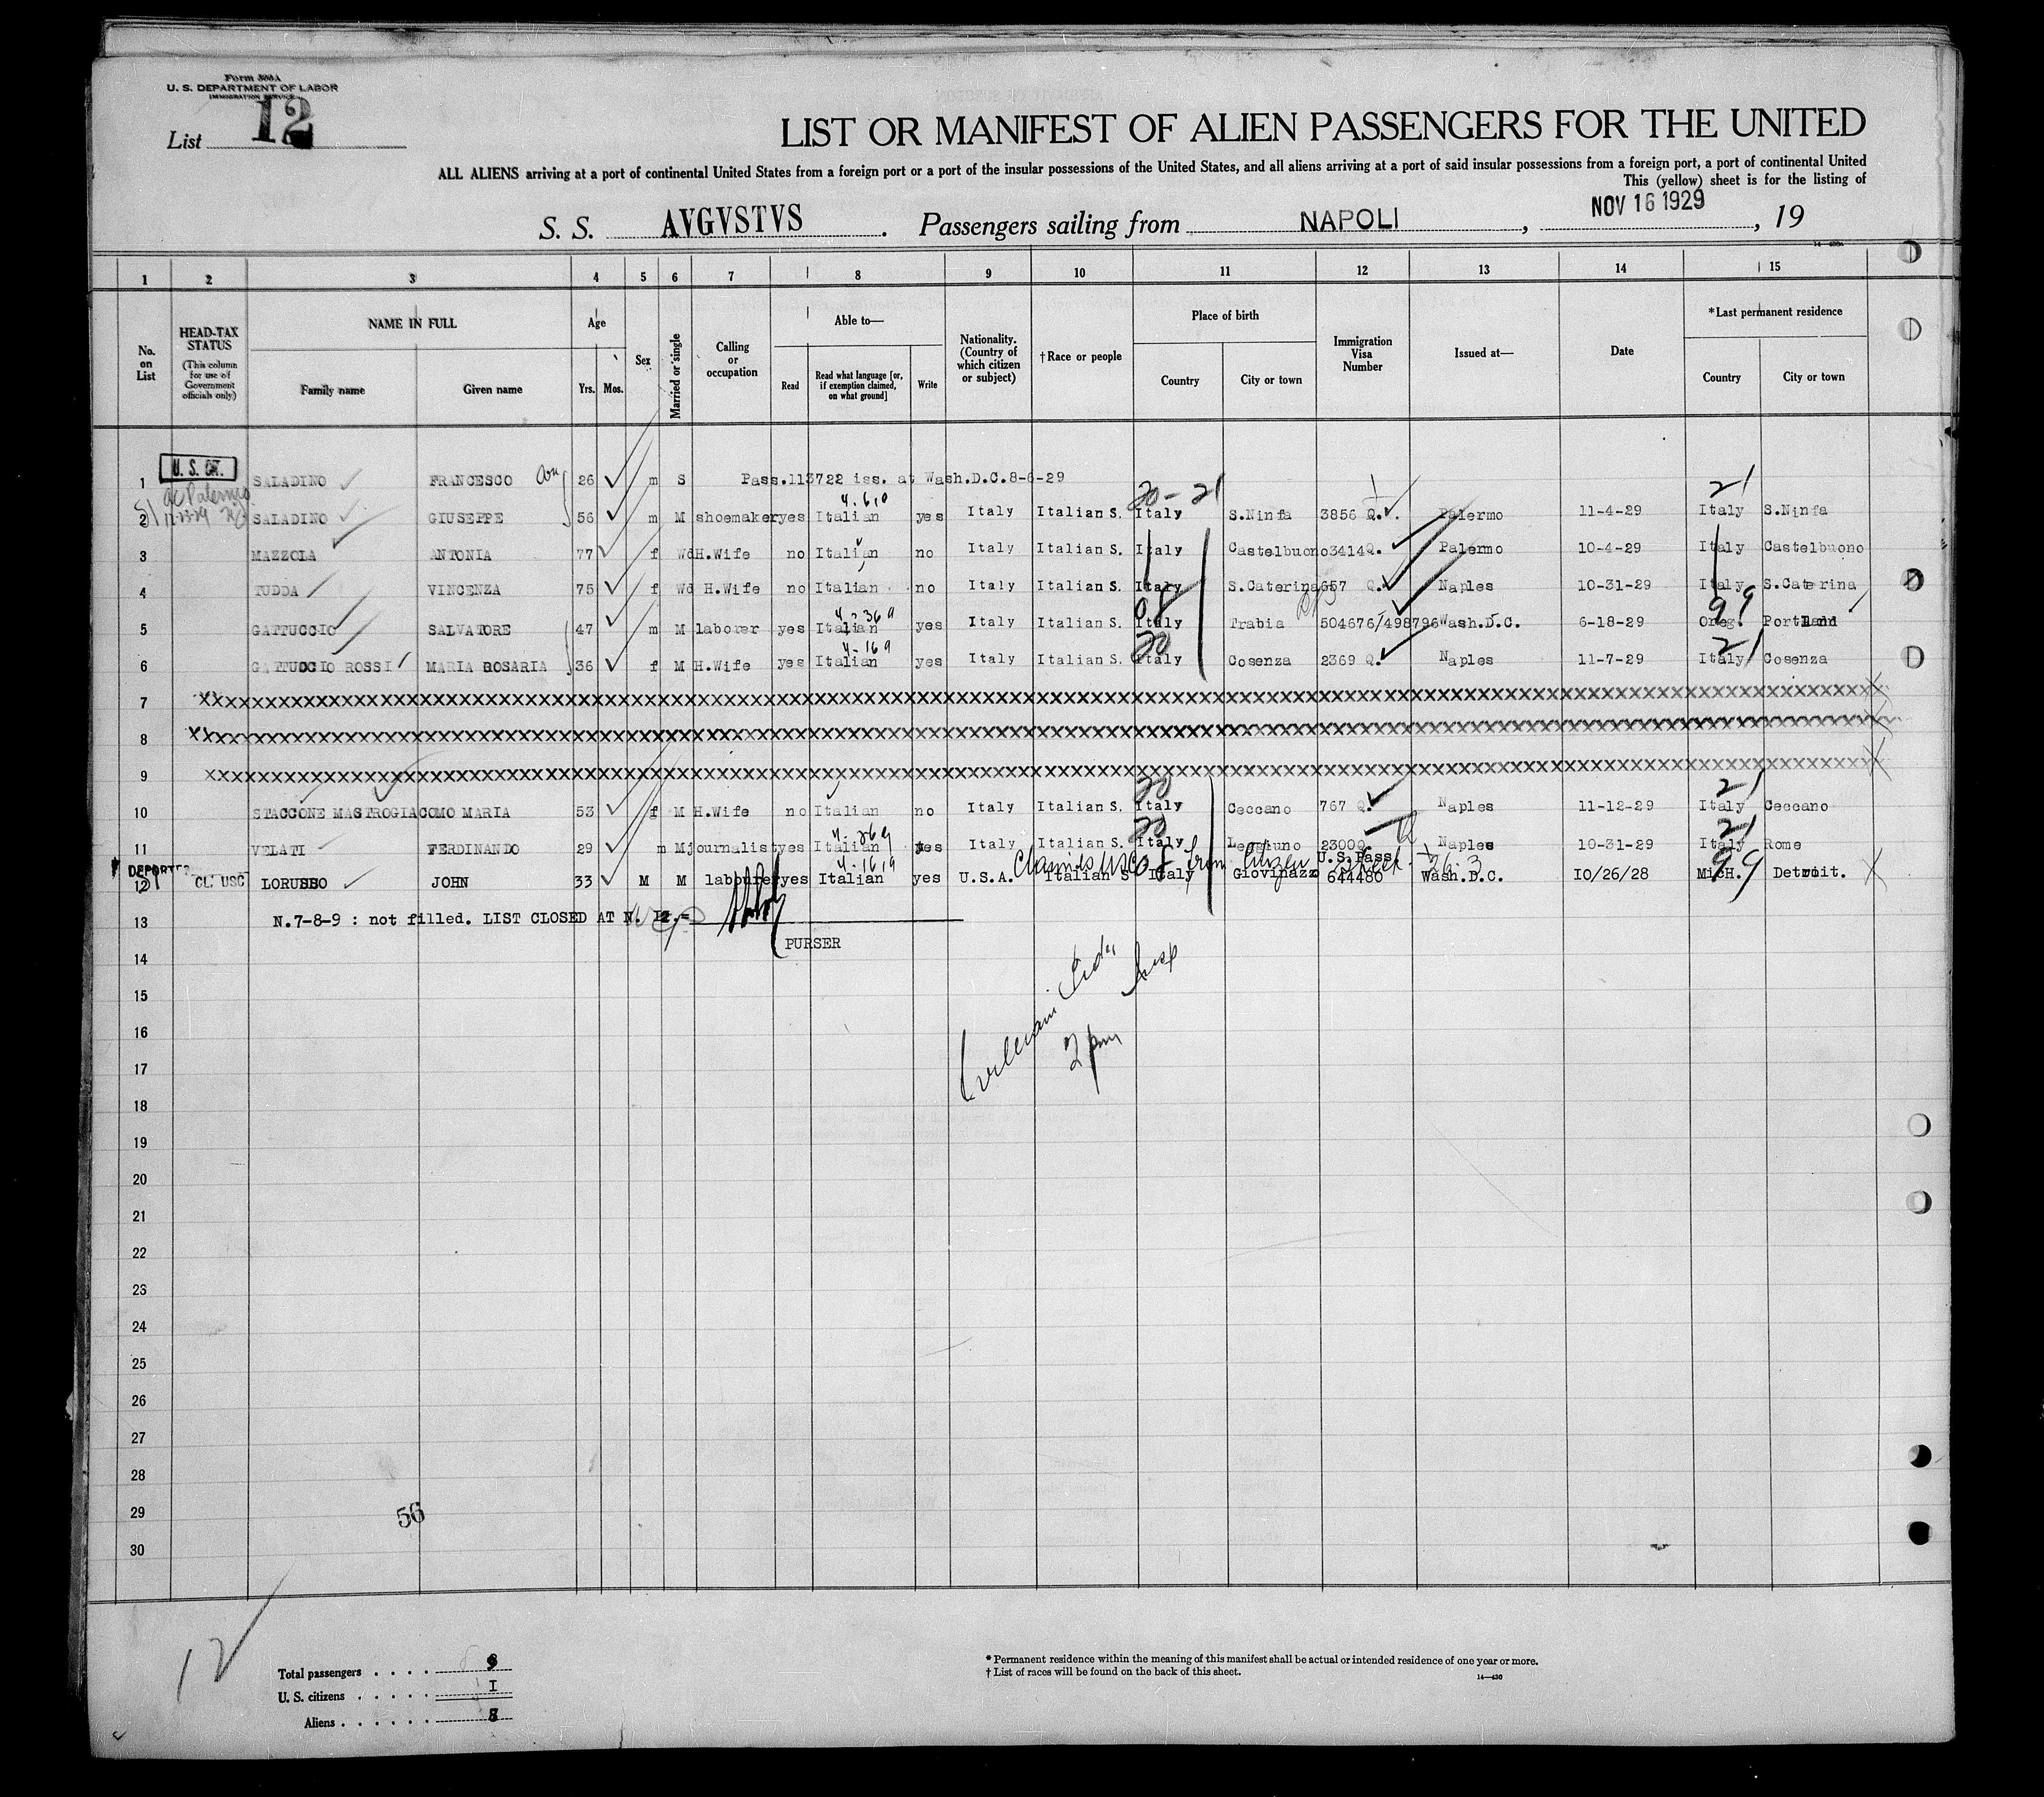 Form 500A
U. S. DEPARTMENT OF LABOR
IMMIGRATION SERVICE
List 12
LIST OR MANIFEST OF ALIEN PASSENGERS FOR THE UNITED
ALL ALIENS arriving at a port of continental United States from a foreign port or a port of the insular possessions of the United States, and all aliens arriving at a port of said insular possessions from a foreign port, a port of continental United
This (yellow) sheet is for the listing of
S. S. AVGVSTVS . Passengers sailing from NAPOLI , NOV 16 1929 , 19
1 2 3 4 5 6 7 8 9 10 11 12 13 14 15
No. on List
HEAD-TAX STATUS (This column for use of Government officials only)
NAME IN FULL
Family name Given name
Age
Yrs. Mos.
Sex
Married or single
Calling or occupation
Able to—
Read Read what language [or, if exemption claimed, on what ground] Write
Nationality. (Country of which citizen or subject)
†Race or people
Place of birth
Country City or town
Immigration Visa Number
Issued at—
Date
*Last permanent residence
Country City or town
1 U. S. CT. SALADINO FRANCESCO 26 m S Pass.113722 iss. at Wash.D.C.8-6-29
2 SALADINO GIUSEPPE 56 m M shoemaker yes Italian yes Italy Italian S. Italy S.Ninfa 3856 Q. Palermo 11-4-29 Italy S.Ninfa
3 MAZZOLA ANTONIA 77 f Wd H.Wife no Italian no Italy Italian S. Italy Castelbuono 3414 Q. Palermo 10-4-29 Italy Castelbuono
4 TUDDA VINCENZA 75 f Wd H.Wife no Italian no Italy Italian S. Italy S.Caterina 657 Q. Naples 10-31-29 Italy S.Caterina
5 GATTUCCIO SALVATORE 47 m M laborer yes Italian yes Italy Italian S. Italy Trabia 504676/498796 Wash.D.C. 6-18-29 Oreg. Portland
6 GATTUCCIO ROSSI MARIA ROSARIA 36 f M H.Wife yes Italian yes Italy Italian S. Italy Cosenza 2369 Q. Naples 11-7-29 Italy Cosenza
7
8
9
10 STACCONE MASTROGIACOMO MARIA 53 f M H.Wife no Italian no Italy Italian S. Italy Ceccano 767 Q. Naples 11-12-29 Italy Ceccano
11 VELATI FERDINANDO 29 m M journalist yes Italian yes Italy Italian S. Italy Leggiuno 2300 Q. Naples 10-31-29 Italy Rome
DEPORTED
12 CL. USC LORUSSO JOHN 33 M M labourer yes Italian yes U.S.A. Italian S Italy Giovinazzo U.S.Pass. 644480 Wash.D.C. 10/26/28 MicH. Detroit.
13 N.7-8-9 : not filled. LIST CLOSED AT N. 12.=
PURSER
14
15
16
2 pm
17
18
19
20
21
22
23
24
25
26
27
28
29
56
30
12
Total passengers
U. S. citizens I
Aliens 8
* Permanent residence within the meaning of this manifest shall be actual or intended residence of one year or more.
† List of races will be found on the back of this sheet.
14—430